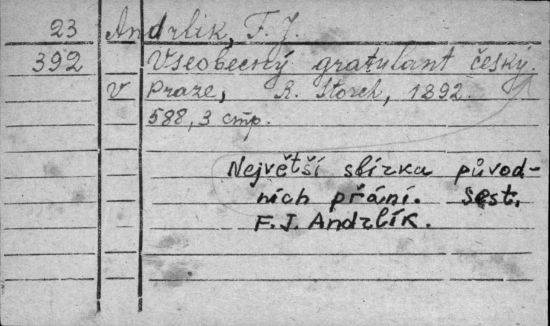 23 Andrlík, F. J.
392 Všeobecný gratulant český.
V Praze, R. Storch, 1892.
588, 3 стр.
Největší sbírka původ-
ních přání. Sest.
F. J. Andrlík.